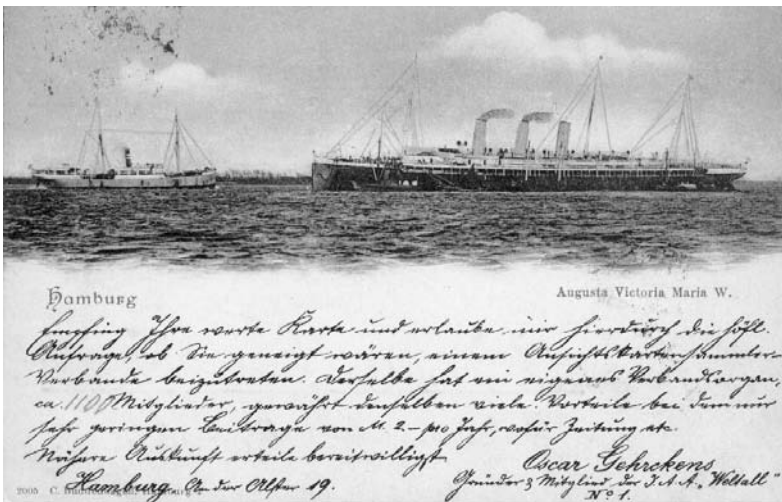 Hamburg
Augusta Victoria Maria W.
Empfing Ihre werte Karte und erlaube mir hierdurch die höfl.
Anfrage, ob Sie geneigt wären, einem Ansichtskartensammler-
Verbande beizutreten. Derselbe hat ein eigenes Verbandsorgan,
ca. 1100 Mitglieder, gewährt denselben viele Vorteile bei dem nur
sehr geringen Beitrage von M. 2.– pro Jahr, wofür Zeitung etc.
Nähere Auskunft erteile bereitwilligst
Oscar Gehrckens
Hamburg, An der Alster 19.
Gründer & Mitglied der I. A. A. „Weltall"
No 1.
2005 C.